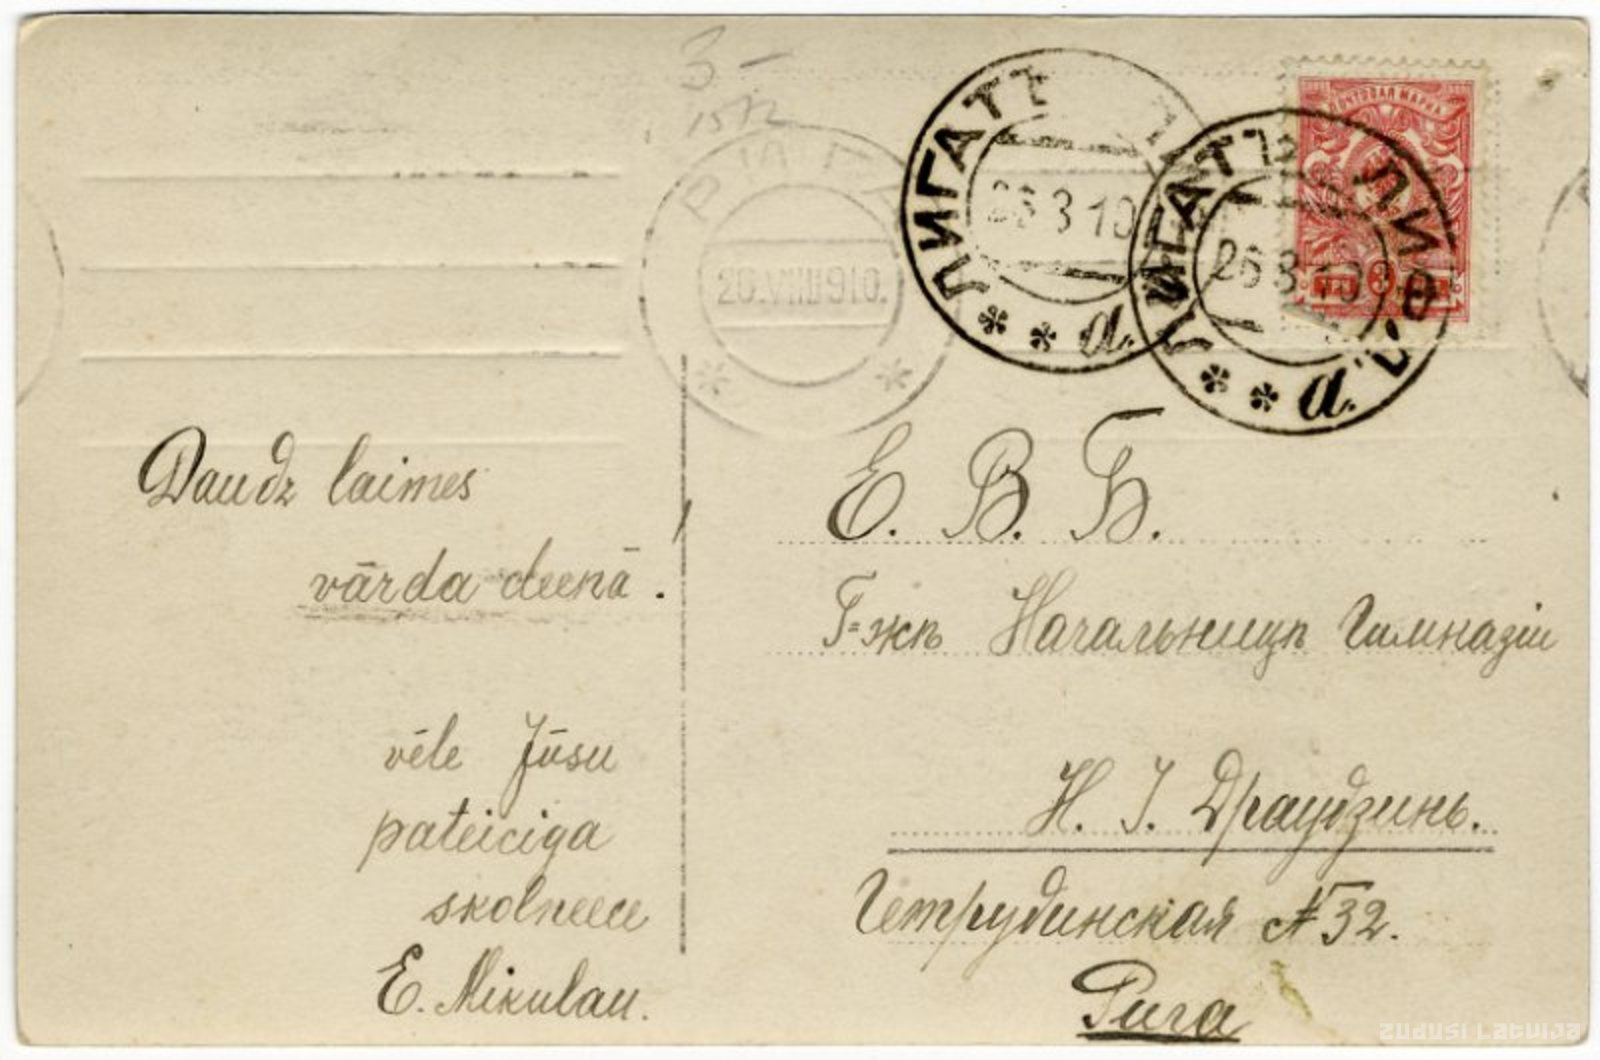 3 –
1572
РИГА
20.VIII.1910.
ЛИГАТЪ
26 3 10
* * а.
ЛИГАТЪ
26 3 10
* * а.
ПОЧТОВАЯ МАРКА
Daudz laimes
vārda deenā.
vēle Jūsu
pateiciga
skolneece
E. Mikulau.
Е. В. Б.
Г=жѣ Начальницѣ Гимназіи
Н. І. Драудзинь.
Гетрудинская № 32.
Рига
ZUDUSI LATVIJA